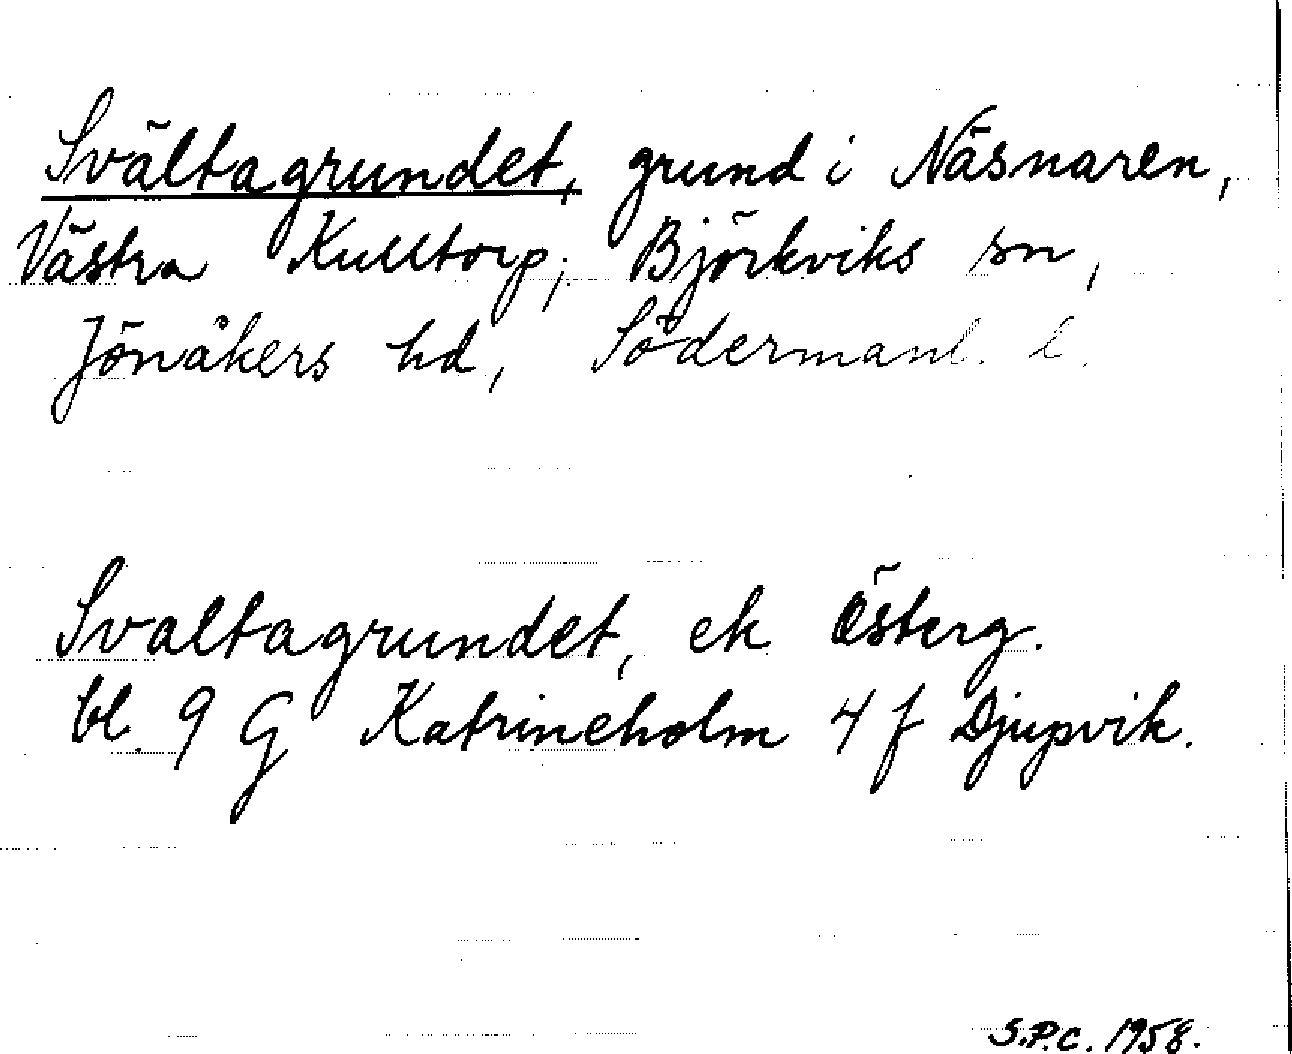 Svältagrundet, grund i Näsnaren,
Västra Kulltorp, Björkviks sn,
Jönåkers hd, Södermanl. l.
Svaltagrundet, ek Österg.
bl. 9 G Katrineholm 4 f Djupvik.
S.P.C. 1958.